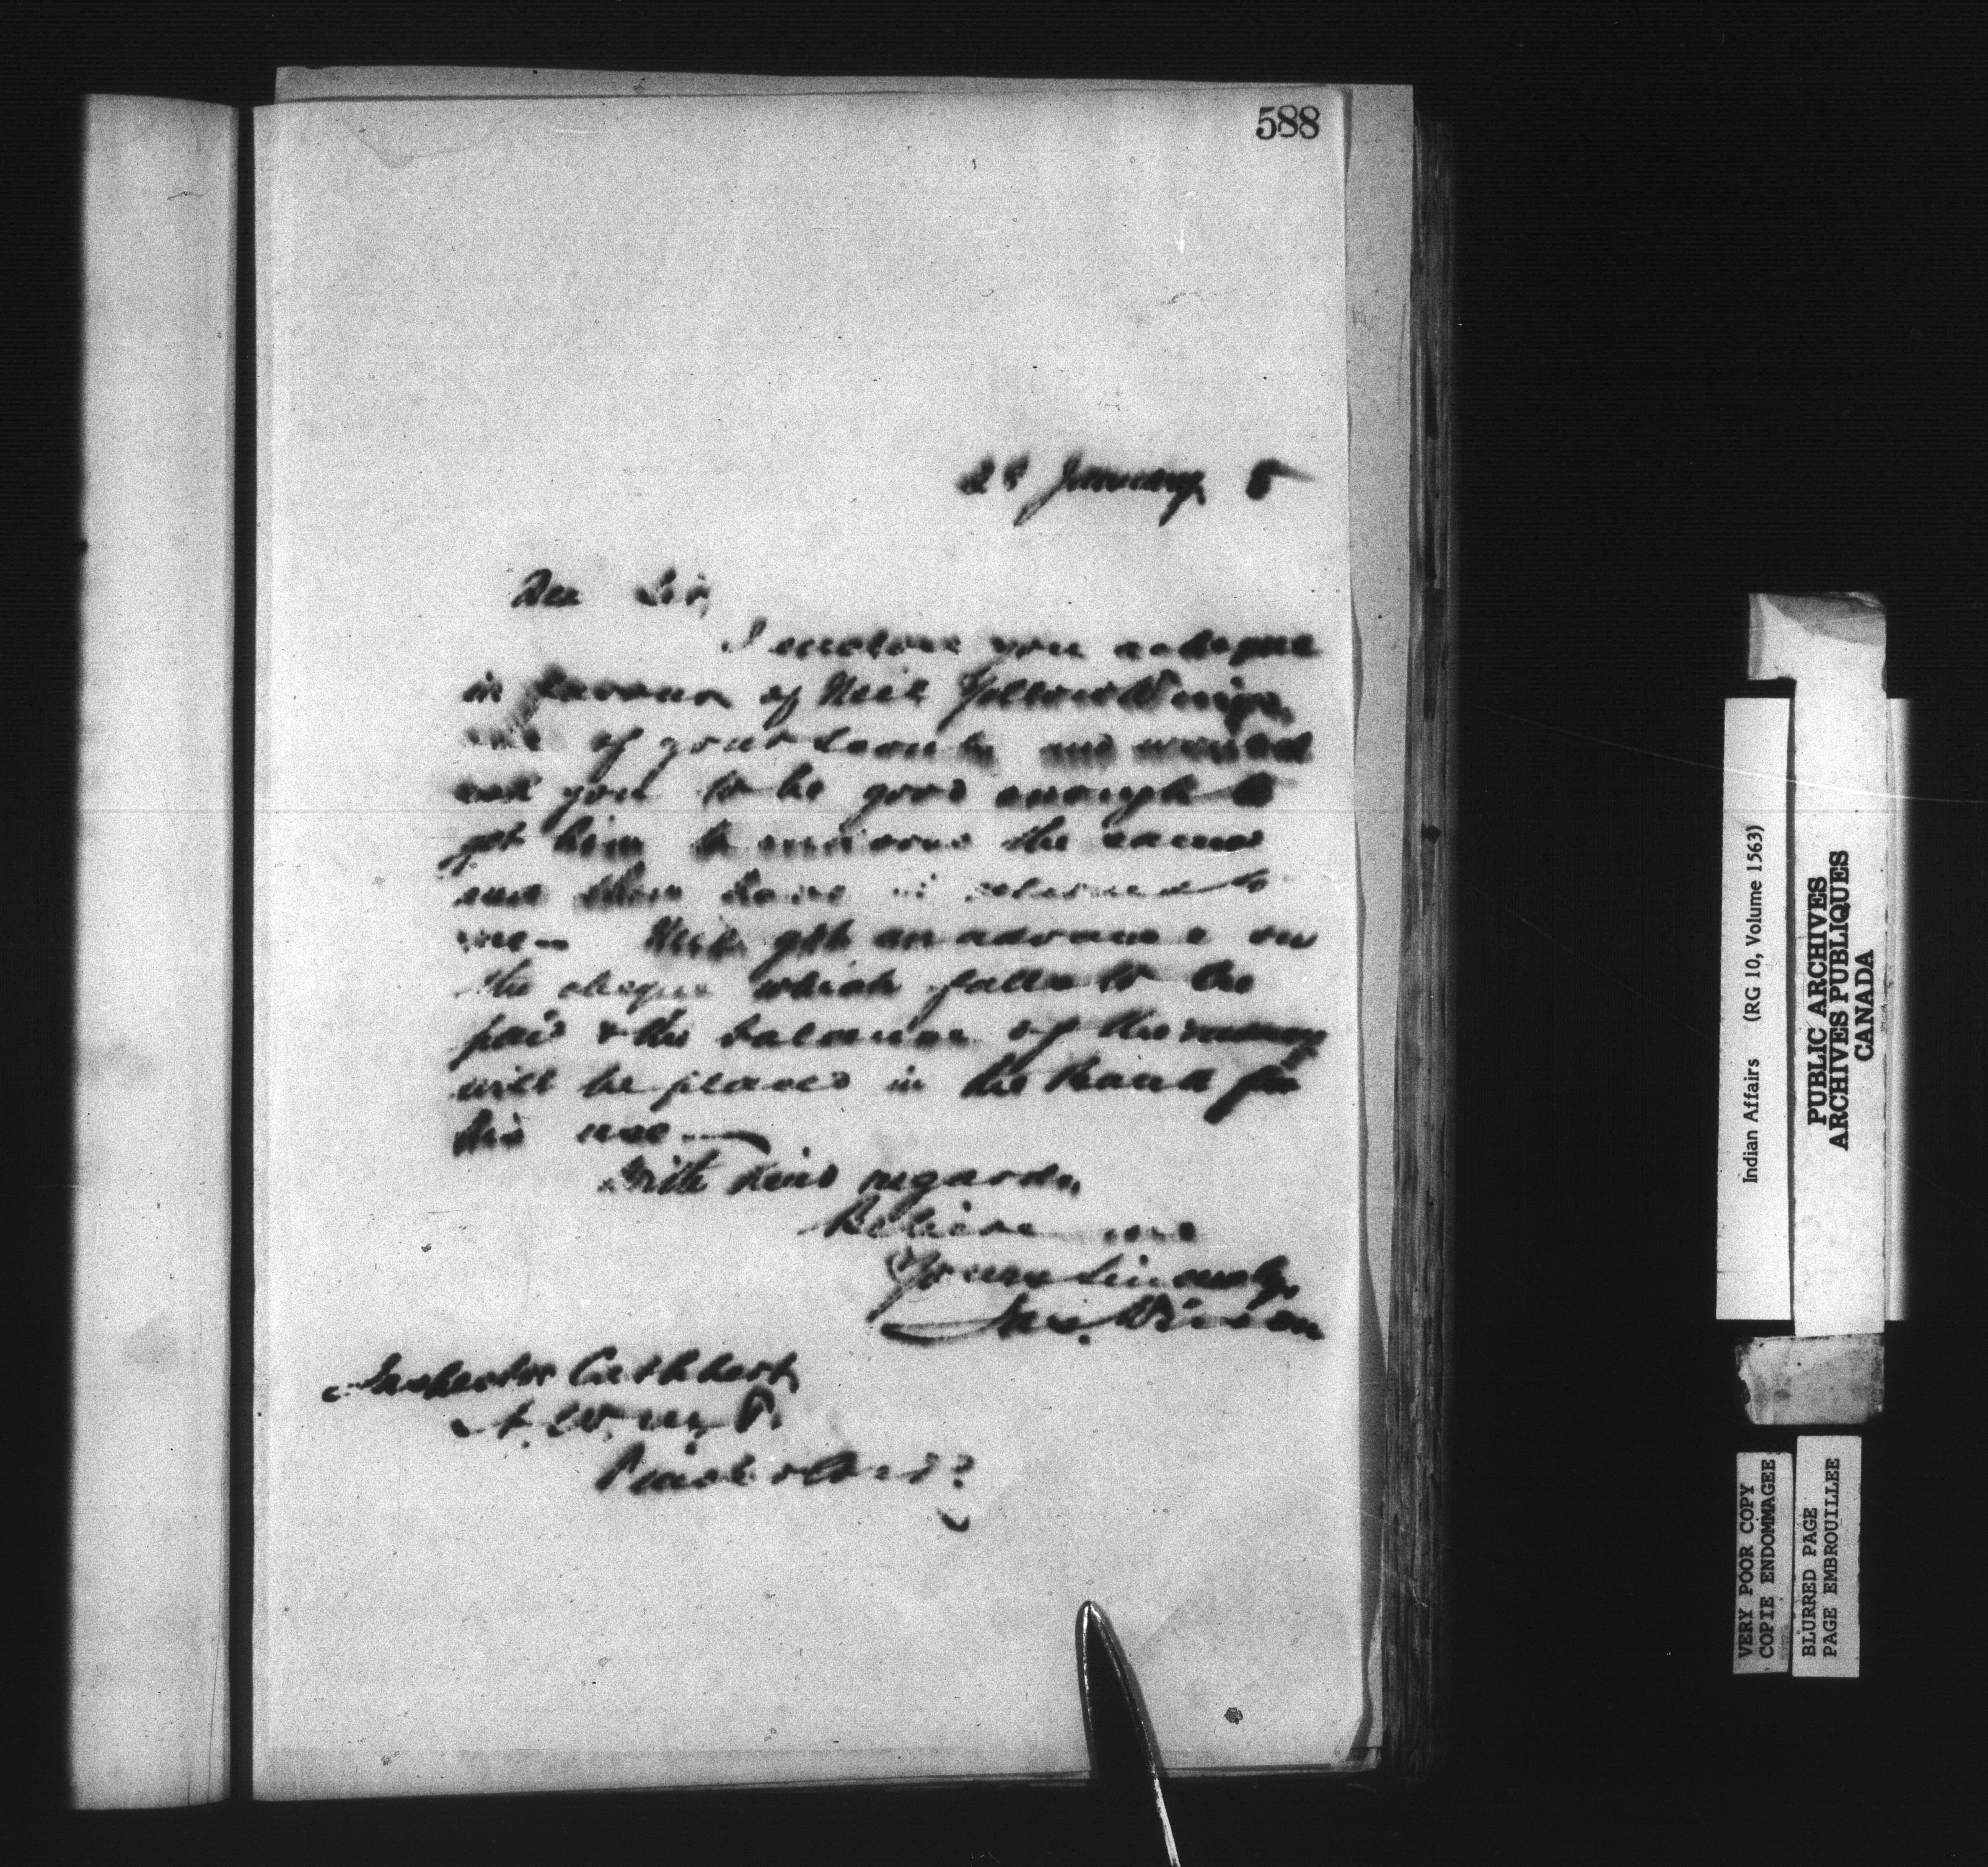 588
28 January 5
Dear Sir,
I enclose you a cheque
in favour of Neil Yellow Wings,
one of your scouts and would
ask you to be good enough to
get him to endorse the same
and then have it returned to
me— Neil got an advance on
the cheque which falls to be
paid & the balance of the money
will be placed in the Bank for
his use—
With kind regards,
Believe me
Yours Sincerely,
Jas. Wilson
Inspector Cuthbert,
N. W. M. P.
Pincher
Indian Affairs (RG 10, Volume 1563)
PUBLIC ARCHIVES
ARCHIVES PUBLIQUES
CANADA
VERY POOR COPY
COPIE ENDOMMAGEE
BLURRED PAGE
PAGE EMBROUILLEE